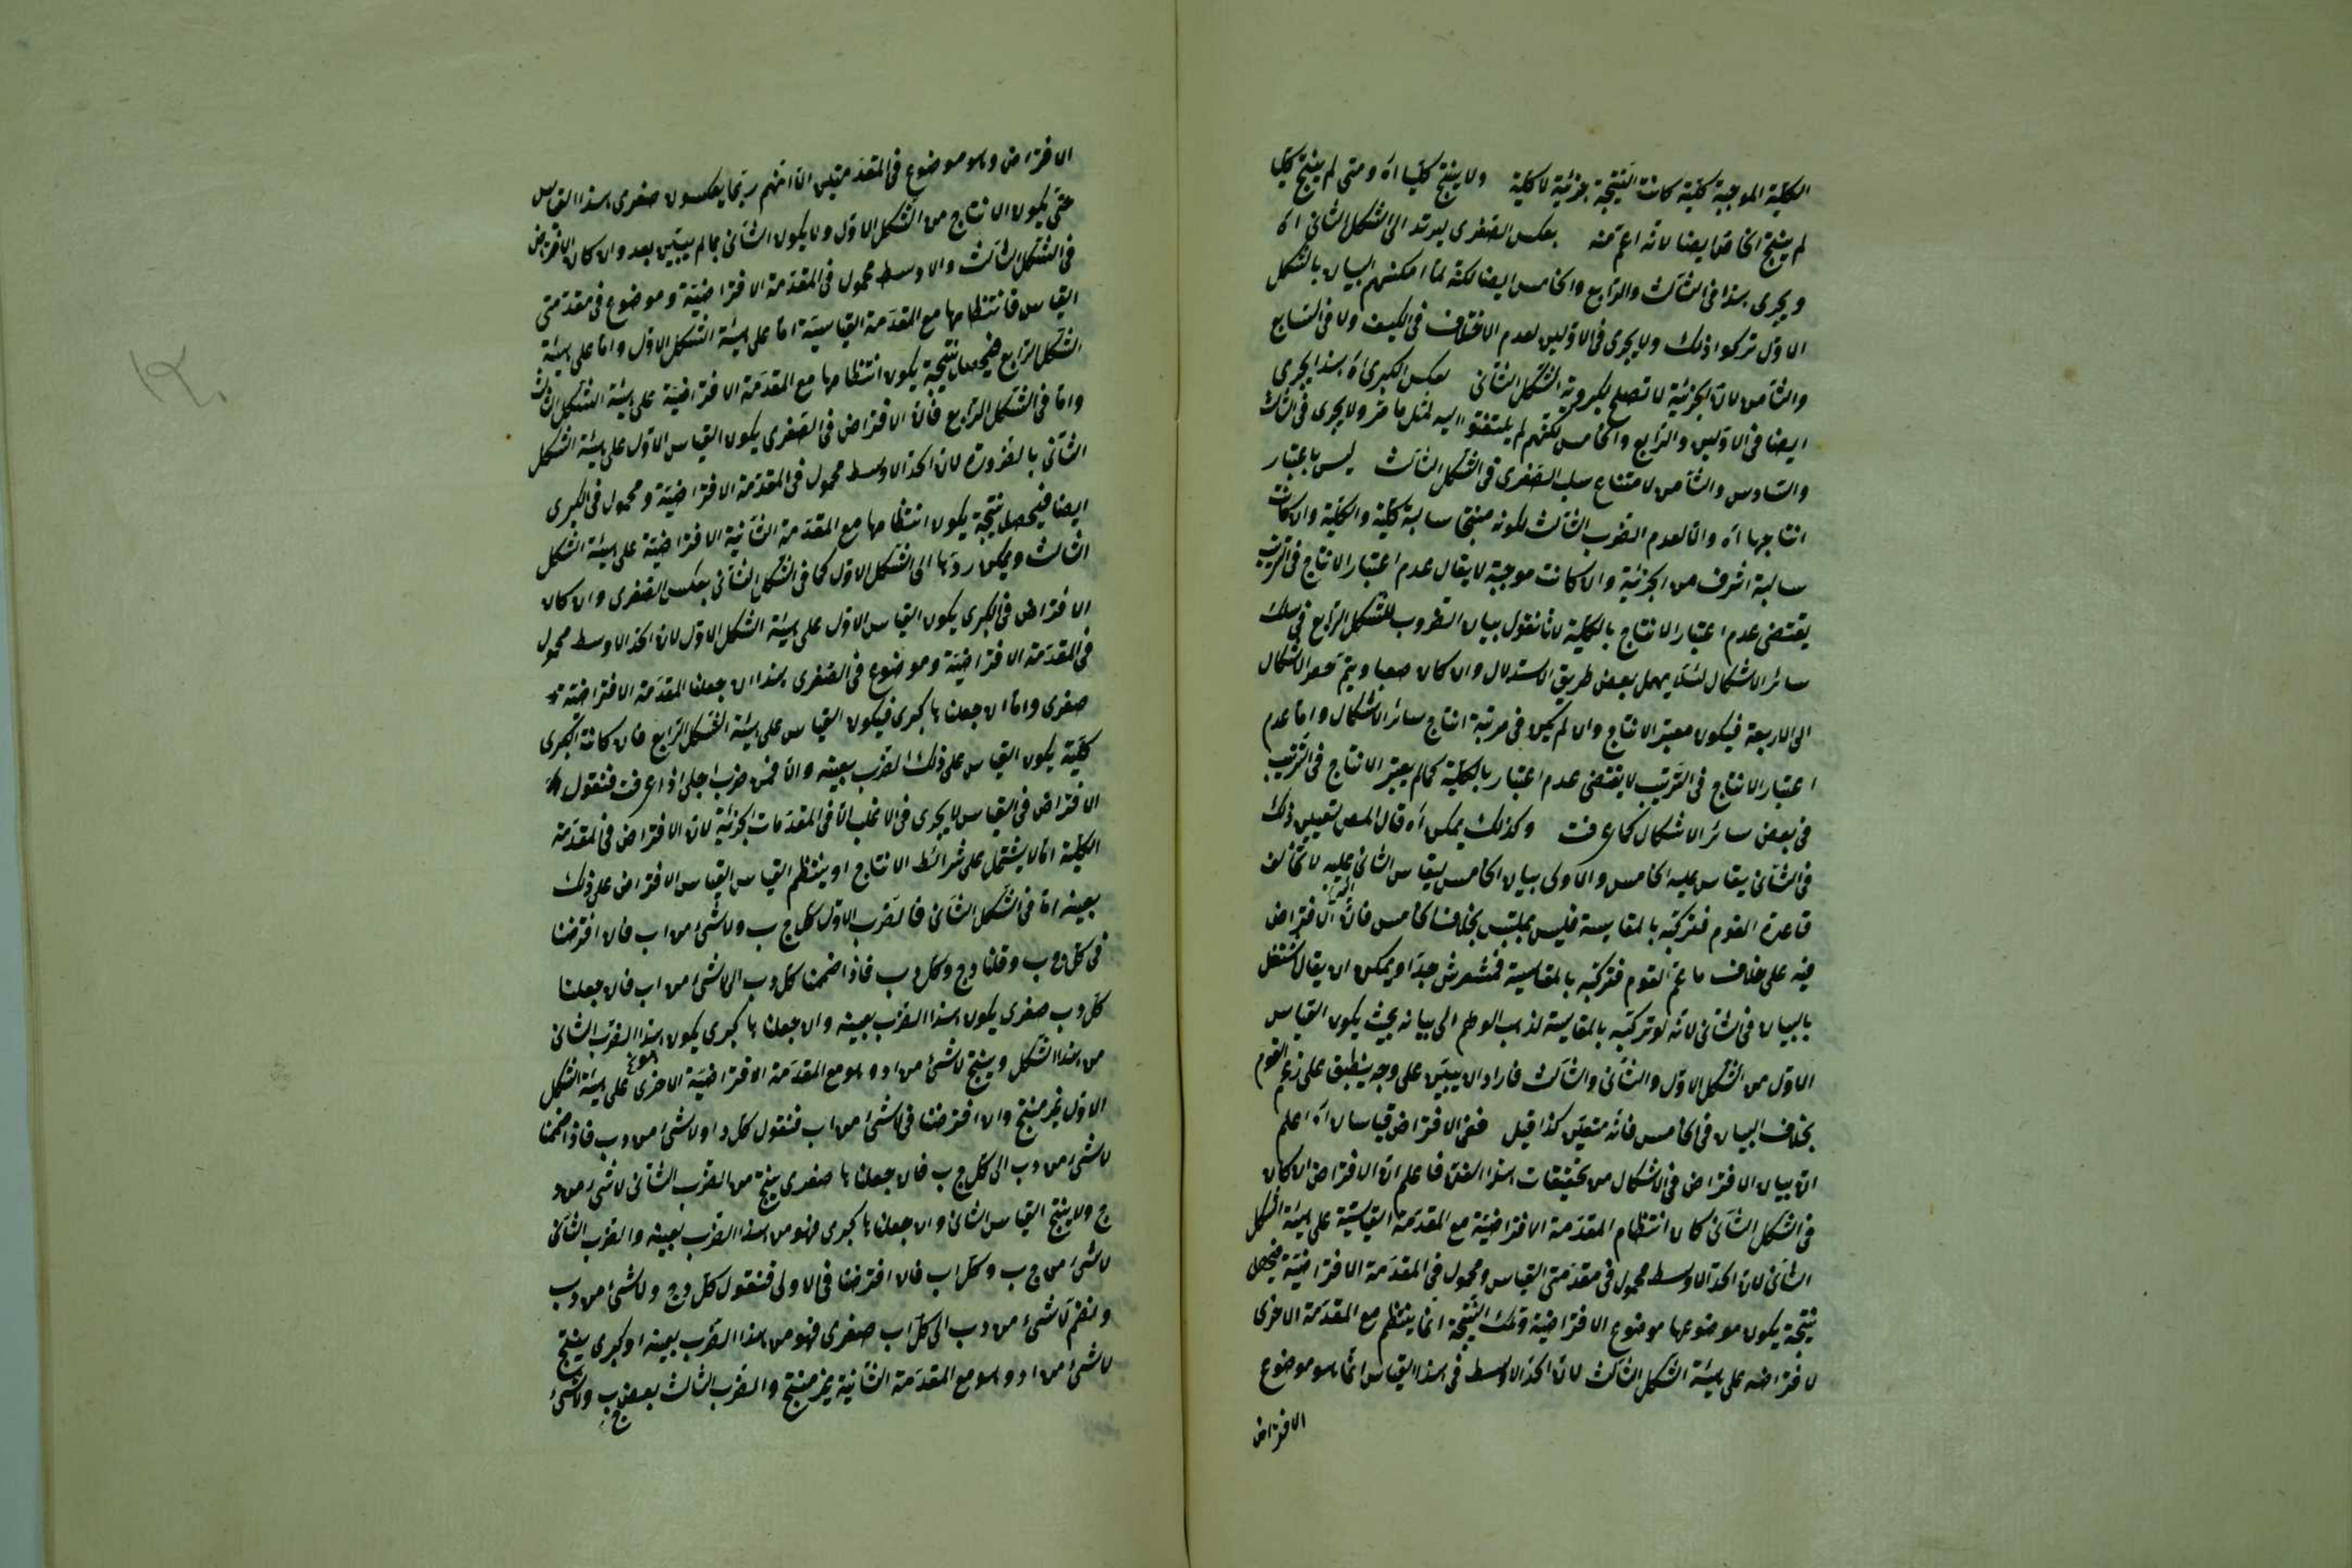 الكلية الموجبة كلية كانت النتيجة جزئية لا كلية ولا ينتج كليا اه ومتى لم ينتج كليا
لم ينتج الخاص ايضا لانه اعم منه بعكس الصغرى ليرتد الى الشكل الثانى اه
ويجرى هذا فى الثالث والرابع والخامس ايضا لكنه لما امكنهم البيان بالشكل
الاول تركوا ذلك ولا يجرى فى الاولين لعدم الاختلاف فى الكيف ولا فى السابع
والثامن لان الجزئية لا تصلح لكبروية الشكل الثانى بعكس الكبرى اه هذا يجرى
ايضا فى الاولين والرابع والخامس لكنهم لم يلتفتوا اليه لمثل ما مر ولا يجرى فى الثالث
والسادس والثامن لامتناع سلب الصغرى فى الشكل الثالث ليس باعتبار
انتاجها اه والا لعدم الضرب الثالث لكونه منتجا سالبة كلية والكلية وان كانت
سالبة اشرف من الجزئية وان كانت موجبة لا يقال عدم اعتبار الانتاج فى الترتيب
يقتضى عدم اعتبار الانتاج بالكلية لانا نقول بيان الضروب للشكل الرابع فى سلك
سائر الاشكال لئلا يهمل بعض طريق الاستدلال وان كان صعبا ويتم حصر الاشكال
الى الاربعة فيكون معتبر الانتاج وان لم يكن فى مرتبة انتاج سائر الاشكال واما عدم
اعتبار الانتاج فى الترتيب لا يقتضى عدم اعتبار بالكلية كما لم يعتبر الانتاج فى الترتيب
فى بعض سائر الاشكال كما عرفت وكذلك يمكن اه قال المص تعيين ذلك
فى الثانى يقاس عليه الخامس والاولى بيان الخامس ليقاس الثانى عليه لا تخالف
قاعدة القوم فتركبه بالمقايسة فليس بملتبس بخلاف الخامس فان الافتراض
فيه على خلاف ما عم القوم فتركبه بالمقايسة فمشوش جدا ويمكن ان يقال اشتغل
بالبيان فى الثانى لانه لو تركبه بالمقايسة لذهب الوهم الى بيانه بحيث يكون القياس
الاول من الشكل الاول والثانى والثالث فاراد ان يبين على وجه ينطبق على زعم القوم
بخلاف البيان فى الخامس فانه متعين كذا قيل ففى الافتراض قياسان اه اعلم
ان بيان الافتراض فى الاشكال من تحقيقات هذا الفن فاعلم ان الافتراض ان كان
فى الشكل الثانى كان انتظام المقدمة الافتراضية مع المقدمة القياسية على هيئة الشكل
الثانى لان الحد الاوسط محمول فى مقدمتى القياس ومحمول فى المقدمة الافتراضية فيحصل
نتيجة يكون موضوعها موضوع الافتراضية وتلك النتيجة انما ينتظم مع المقدمة الاخرى
لافتراضه على هيئة الشكل الثالث لان الحد الاوسط فى هذا القياس انما هو موضوع
الافتراض
الافتراض وهو موضوع فى المقدمتين الا انهم ربما يعكسون صغرى هذا القياس
حتى يكون الانتاج من الشكل الاول ولا يكون الثانى بما لم يبين بعد وان كان الافتراض
فى الشكل الثالث والاوسط محمول فى المقدمة الافتراضية وموضوع فى مقدمتى
القياس فانتظامها مع المقدمة القياسية اما على هيئة الشكل الاول واما على هيئة
الشكل الرابع فيحصل نتيجة يكون انتظامها مع المقدمة الافتراضية على هيئة الشكل الثالث
واما فى الشكل الرابع فان الافتراض فى الصغرى يكون القياس الاول على هيئة الشكل
الثانى بالضرورة لان الحد الاوسط محمول فى المقدمة الافتراضية ومحمول فى الكبرى
ايضا فيحصل نتيجة يكون انتظامها مع المقدمة الثانية الافتراضية على هيئة الشكل
الثالث ويمكن ردها الى الشكل الاول كما فى الشكل الثانى بعكس الصغرى وان كان
الافتراض فى الكبرى يكون القياس الاول على هيئة الشكل الاول لان الحد الاوسط محمول
فى المقدمة الافتراضية وموضوع فى الصغرى هذا ان جعلنا المقدمة الافتراضية
صغرى واما ان جعلناها كبرى فيكون القياس على هيئة الشكل الرابع فان كانت الكبرى
كلية يكون القياس على ذلك الضرب بعينه والا فمن ضرب اجلى اذا عرفت فنقول
الافتراض فى القياس لا يجرى فى الاغلب الا فى المقدمات الجزئية لان الافتراض فى المقدمة
الكلية اما لا يشتمل على شرائط الانتاج او ينتظم القياس القياس الافتراض على ذلك
بعينه اما فى الشكل الثانى فالضرب الاول كل ج ب ولا شئ من اب فان افترضنا
فى كل ج ب وقلنا د ج وكل د ب فاذا ضممنا كل د ب الى لا شئ من اب فان جعلنا
كل د ب صغرى يكون هذا الضرب بعينه وان جعلناها كبرى يكون هذا الضرب الثانى
من هذا الشكل وينتج لا شئ من ا د وهو مع المقدمة الافتراضية الاخرى على هيئة الشكل
الاول غير منتج وان افترضنا فى لا شئ من اب فنقول كل د ا ولا شئ من د ب فاذا ضممنا
لا شئ من د ب الى كل ج ب فان جعلناها صغرى ينتج من الضرب الثانى لا شئ من د
ج ولا ينتج القياس الثانى وان جعلناها كبرى فهو من هذا الضرب بعينه والضرب الثانى
لا شئ من ج ب وكل اب فان افترضنا فى الاولى فنقول كل د ج ولا شئ من د ب
ونضم لا شئ من د ب الى كل اب صغرى فهو من هذا الضرب بعينه او كبرى ينتج
لا شئ من ا د وهو مع المقدمة الثانية غير منتج والضرب الثالث بعض ج ب ولا شئ